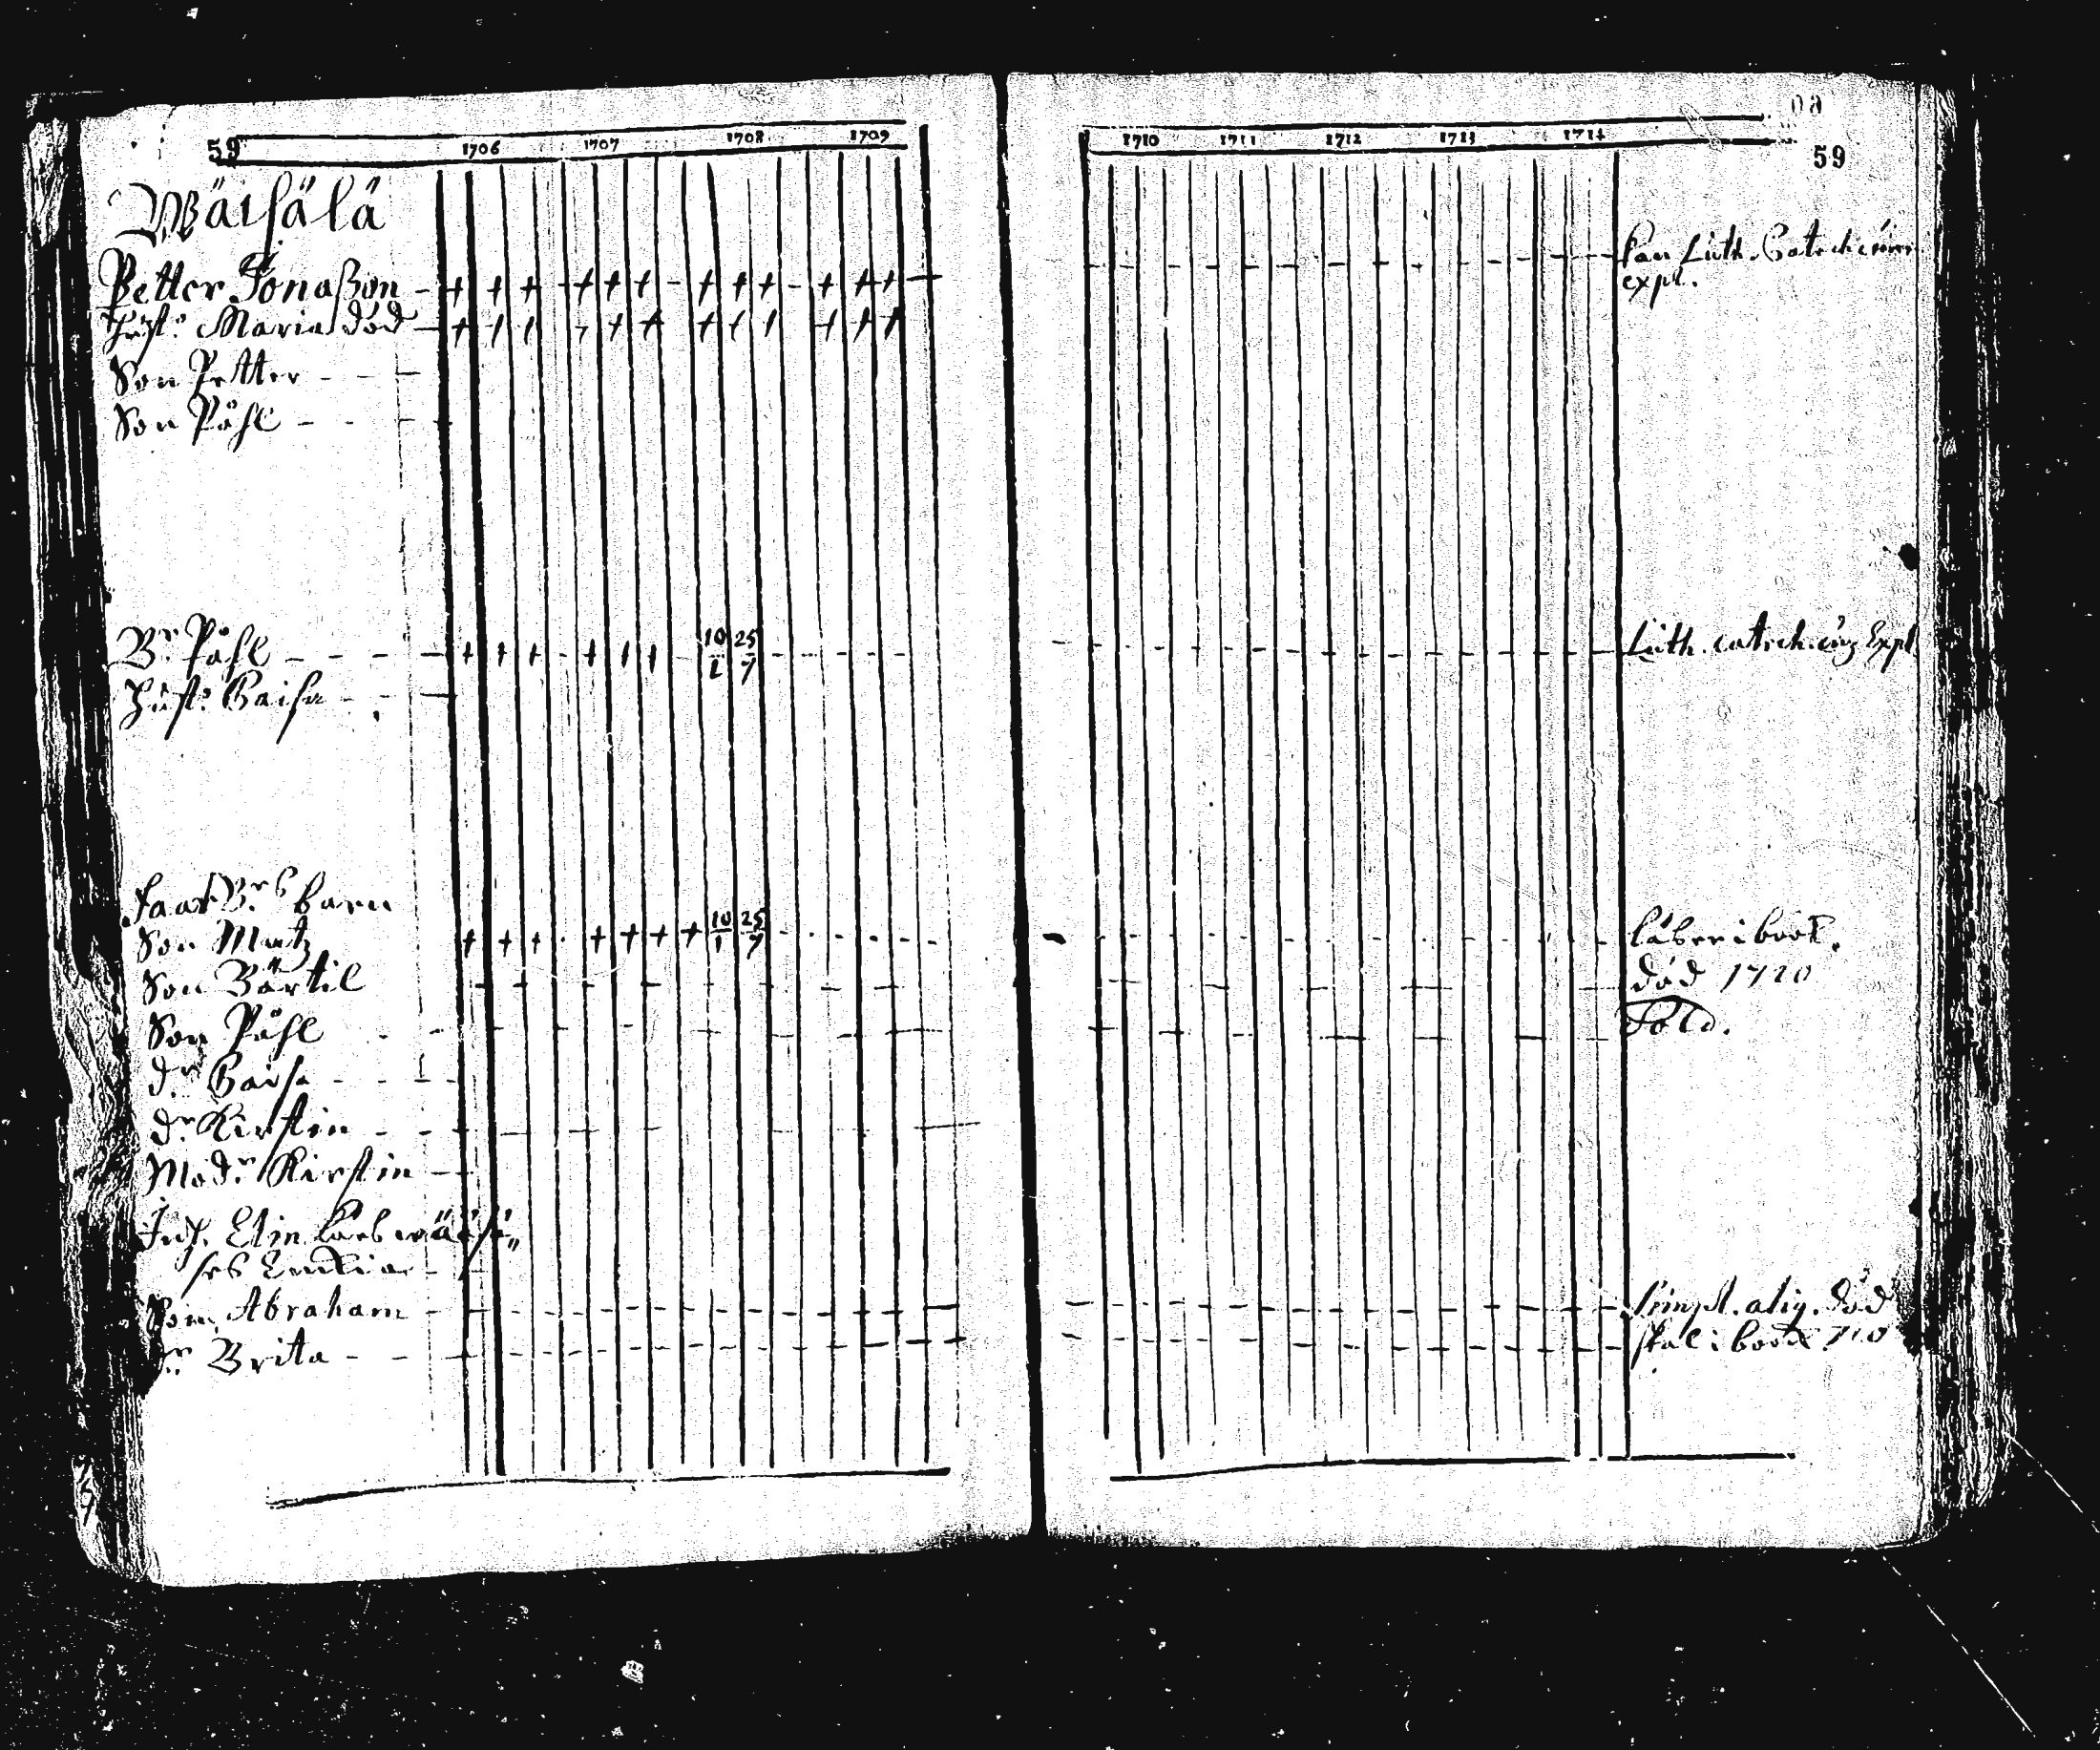 59 1706 1707 1708 1709
Wäisälä
Petter Jonaßon
Hust: Maria död
Son Petter
Son Påhl
Br Påhl 10/1 25/7
Hust: Caisa
Faar Brs barn
Son Matz 10/1 25/7
Son Bärtil
Son Påhl
dr Caisa
dr Kirstin
Modr Kirstin
Elin
Son Abraham
dr Brita
1710 1711 1712 1713 1714
59
kan Luth. Catechesin
expl.
Luth. catech. Expl
läser i book.
död 1710
Sold.
simpl. aliq. död
i book 710